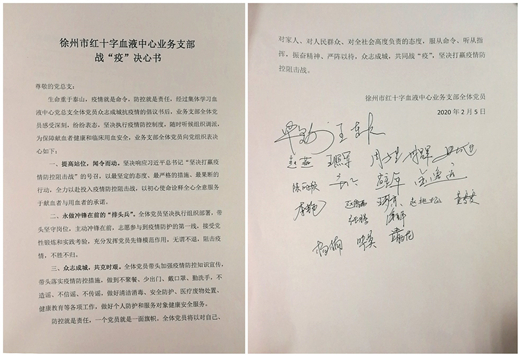 徐州市红十字血液中心业务支部
战“疫”决心书
尊敬的党总支：
生命重于泰山，疫情就是命令，防控就是责任。经过集体学习血
液中心党总支全体党员众志成城抗疫情的倡议书后，业务支部全体党
员感受深刻，纷纷表态，坚决执行疫情防控制度，随时听候组织调遣，
为保障献血者健康和临床用血安全，业务支部全体党员向党组织表决
心如下：
一、提高站位，闻令而动。坚决响应习近平总书记“坚决打赢疫
情防控阻击战”的号召，以最坚定的态度、最严格的措施、最果断的
行动，全力以赴投入疫情防控阻击战，以初心使命诠释全心全意服务
于献血者与用血者的承诺。
二、永做冲锋在前的“排头兵”。全体党员坚决执行组织部署，带
头坚守岗位，主动冲锋在前，志愿参与到疫情防治的第一线，接受党
性锻炼和实践考验，充分发挥党员先锋模范作用，无谓不退，阻击疫
情，不胜不归。
三、众志成城，共克时艰。全体党员带头加强疫情防控知识宣传，
带头落实疫情防控措施，做到不聚餐、少出门、戴口罩、勤洗手，不
造谣、不信谣、不传谣，做好清洁消毒、安全防护、医疗废物处置、
健康教育等各项工作，做好个人防护和服务对象健康安全服务。
防控就是责任，一个党员就是一面旗帜，全体党员将以对自己、
对家人、对人民群众、对全社会高度负责的态度，服从命令、听从指
挥，振奋精神、严阵以待，众志成城，共同战“疫”，坚决打赢疫情防
控阻击战。
徐州市红十字血液中心业务支部全体党员
2020 年 2 月 5 日